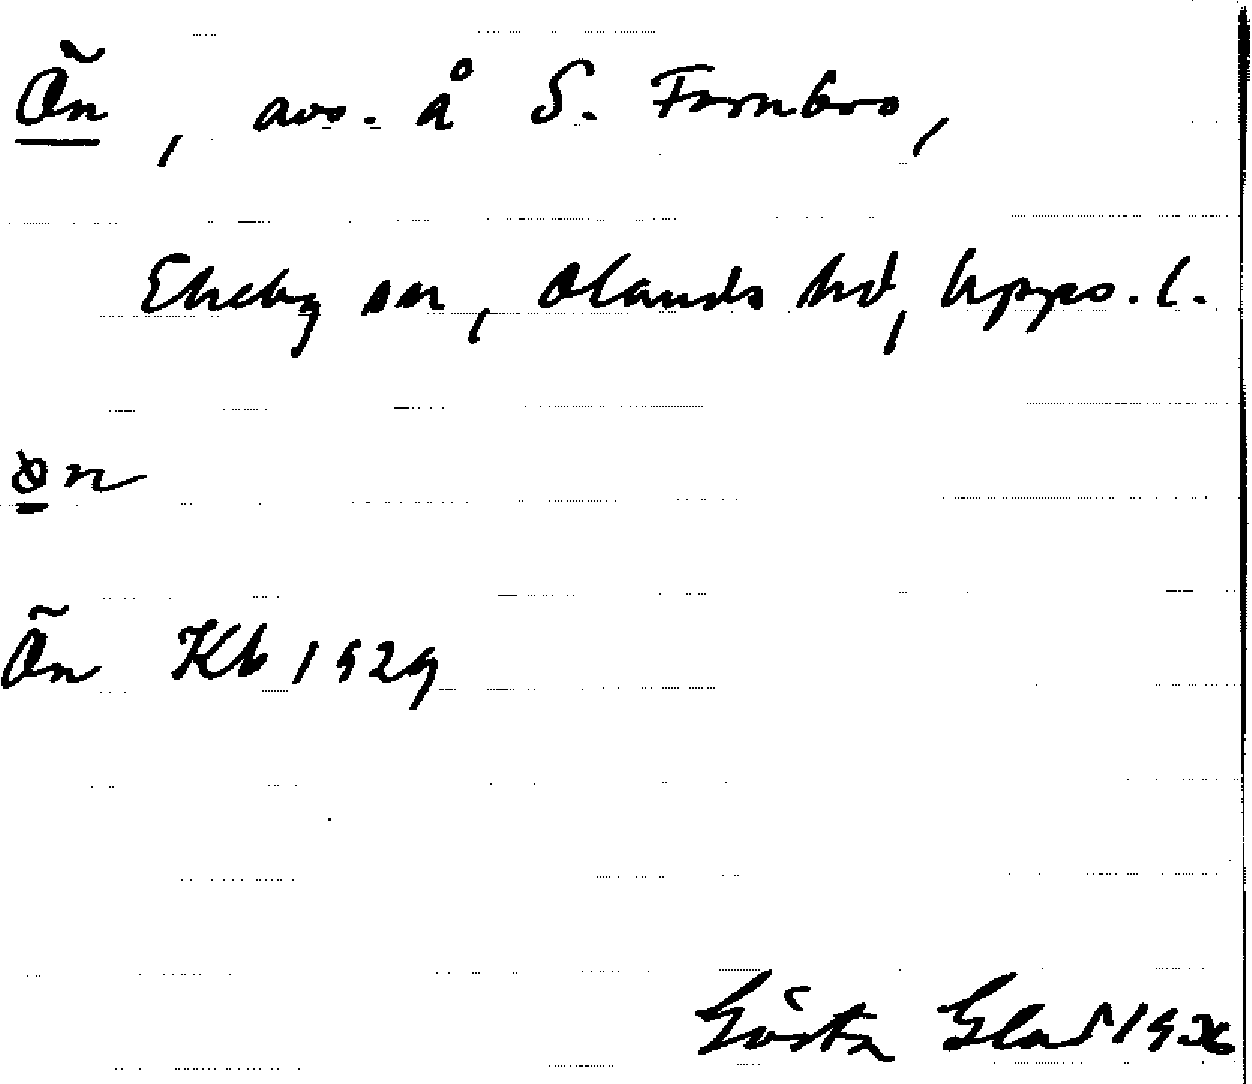 Ön, avs. å S. Fornbro,
Ekeby sn, Olands hd, Upps. l.
øn
Ön Kb 1929
Gösta Glad 1936